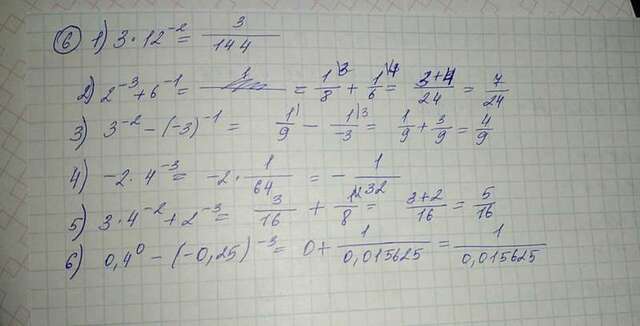 ⑥ 1) 3 · 12⁻² = 3/144
2) 2⁻³ + 6⁻¹ = = 1\3/8 + 1\4/6 = 3+4/24 = 7/24
3) 3⁻² − (−3)⁻¹ = 1\/9 − 1\3/−3 = 1/9 + 3/9 = 4/9
4) −2 · 4⁻³ = −2 · 1/64 = − 1/32
5) 3 · 4⁻² + 2⁻³ = 3/16 + 1\2/8 = 3+2/16 = 5/16
6) 0,4⁰ − (−0,25)⁻³ = 0 + 1/0,015625 = 1/0,015625